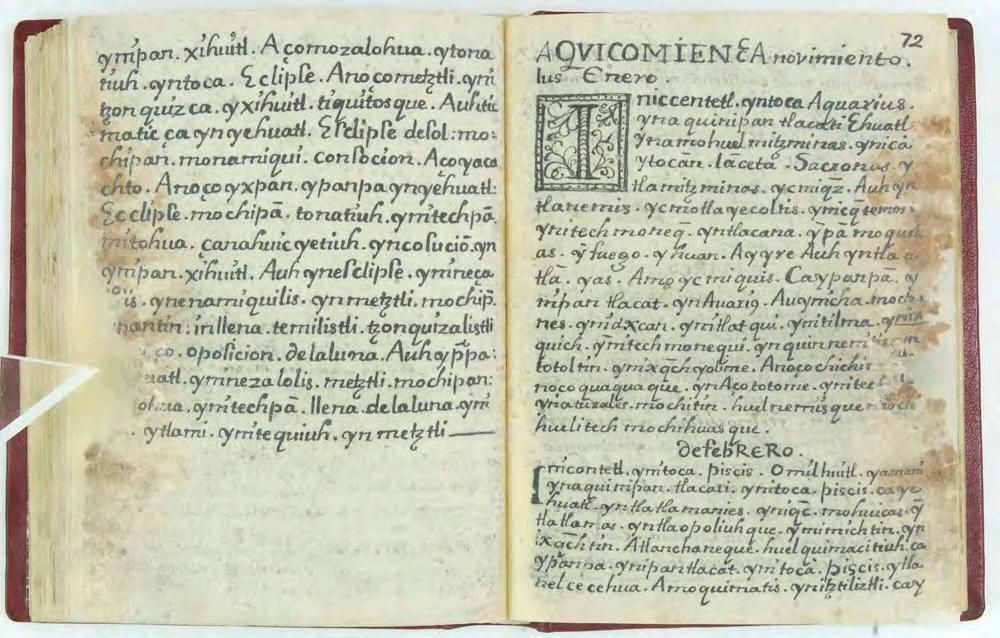 ympan. xihuitl. Açomozalohua. ytona
tiuh. yntoca. Eclipse. Anoçometztli. yni
tzonquizca. yxihuitl. tiquitosque. Auh
matic ca yn yehuatl. Esclipse desol: mo
chipan. monamiqui. consocion. Açoyaca
chto. Anoço yxpan. ypanpa yn yehuatl:
Ecclipse. mochipā. tonatiuh. ymitechpā.
mitohua. canahuic yetiuh. ynconsució. yn
ympan. xihuitl. Auh ynesclipse. ymneça
ynenamiquilis. yn metztli. mochip.
pantin: inllena. temilistli. tzonquizalistli
oposicion. delaluna. Auh yp̄pa:
uatl. ymnezalolis. metztli. mochipan:
ymitechpā. llena. delaluna. yni
ytlami. ymitequiuh. yn metztli
72
AQVICOMIENÇA novimiento.
lus Enero.
Iniccentetl. yntoca Aquarius.
yna quinipan tlacati Ehuatl
ynamohuel mitzminas. ynica
ytocan. lāceta. Sacronas. y
tlamitzminas. ycmiqz. Auh yn
tlanemis. ycmotlayecoltis. ynicq̄
ynitech moneq. yntlacana. ȳpā mo
as. ȳ fuego. yhuan. Ayyre Auh yntla
tlā. yas. Amo yc miquis. Caypanpā. y
nipan tlacat. yn Auariꝯ. Auymicha.
nes. ynidxcan. ynitlatqui. ynitilma.
quich. ynitech monequi. yn quinnem
totoltin. ynixq̄ch yolme. Anoço chichi
noço quaquaque. ynAço totome. ynitec
ynaturales. mochitin. huelnemisque
huelitech mochihuasque.
defebRERo.
Inicontetl. ynitoca. piscis. Omilhuitl.
ynaquinipan. tlacati. ynitoca. piscis. caye
huatl. yntlatlamanies. yniqc̄. mohuicas. ȳ
tlatlamas. yntlaopoliuhque. ymimichtin. yn
ixqc̄htin. Atlanchaneque. huel quimacitiuh. ca
ypanpa. ynipantlacat. ynitoca. piscis. ytla
nel cecehua. Amoquimatis. ynitztiliztli. cay